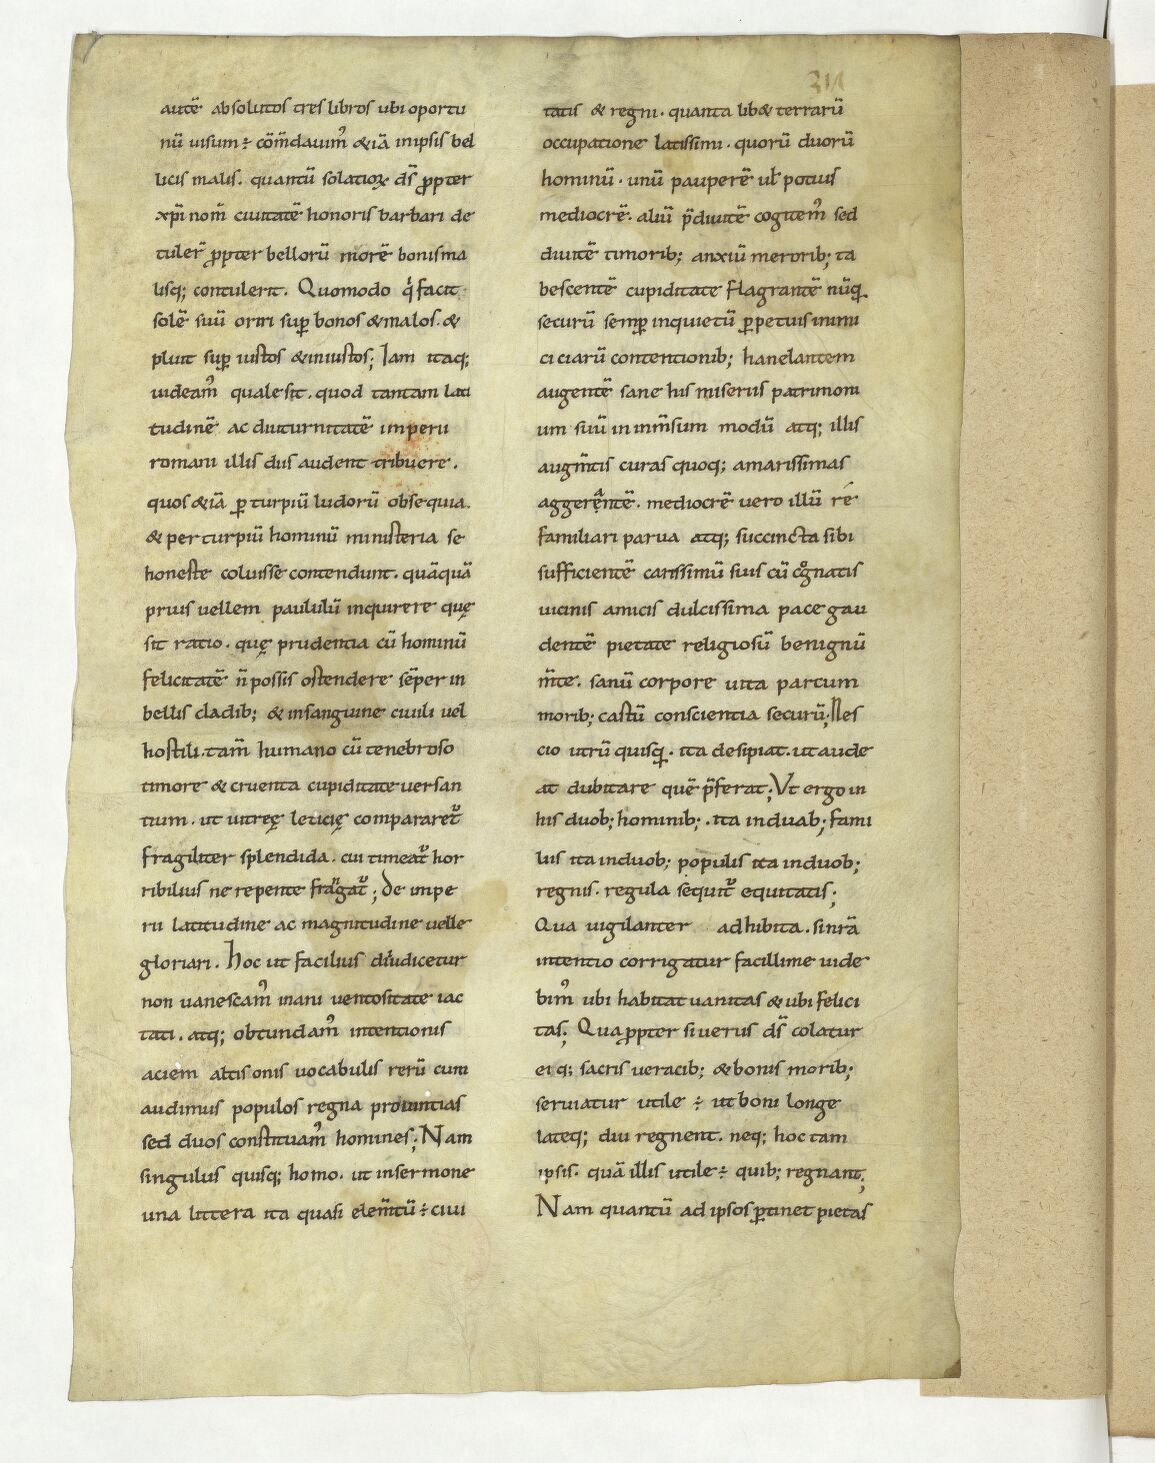 autẽ absolutos tres libros ubi oportu
nũ uisum ÷ cõm̃dauim᾽ &iã in ipsis bel
licis malis. quantũ solatioꝝ dſ̃ ꝓpter
xp̃i nom̃ ciuitatẽ honoris barbari de
tuler̃ ꝓpter bellorũ morẽ bonisma
lisq; contulerit. Quomodo qͥ facit
solẽ suũ oriri suꝑ bonos & malos. &
pluit suꝑ iustos & iniustos; Iam itaq;
uideam᾽ quale sit. quod tantam lati
tudinẽ ac diuturnitatẽ imperii
romani illis diis audent tribuere.
quos &iã ꝑ turpiũ ludorũ obsequia.
& per turpiũ hominũ ministeria se
honeste coluisse contendunt. quãquã
prius uellem paululũ inquirere quę
sit ratio. quę prudentia cũ hominũ
felicitatẽ ñ possis ostendere sẽper in
bellis cladib; & in sanguine ciuili uel
hostili. tam̃ humano cũ tenebroso
timore & cruenta cupiditate uersan
tium. ut uitreę leticię compararet᷑
fragiliter splendida. cui timeat᷑ hor
ribilius ne repente frangat᷑; De impe
rii latitudine ac magnitudine uelle
gloriari. hoc ut facilius diiudicetur
non uanescam᾽ inani uentositate iac
tati. atq; obtundam᾽ intentionis
aciem altisonis uocabulis rerũ cum
audimus populos regna prouintias
sed duos constituam᾽ homines; Nam
singulus quisq; homo. ut in sermone
una littera ita quasi elem̃tũ ÷ ciui
311
tatis & regni. quanta lib& terrarũ
occupatione latissimi. quorũ duorũ
hominũ. unũ pauperẽ ul̃ potius
mediocrẽ. aliũ p̃diuitẽ cogitem᾽ sed
diuitẽ timorib; anxiũ merorib; ta
bescentẽ cupiditate flagrantẽ nũq̃.
securũ semꝑ inquietũ ꝑpetuis inimi
ciciarũ contentionib; hanelantem
augentẽ sane his miseriis patrimoni
um suũ in inm̃sum modũ atq; illis
augm̃tis curas quoq; amarissimas
aggerantẽ. mediocrẽ uero illũ re
familiari parua atq; succincta sibi
sufficientẽ carissimũ suis cũ cognatis
uicinis amicis dulcissima pace gau
dentẽ pietate religiosũ benignũ
m̃te. sanũ corpore uita partum
morib; castũ conscientia securũ; Nes
cio utrũ quisq̃. ita desipiat. ut aude
at dubitare quẽ p̃ferat; Ut ergo in
his duob; hominib;. ita in duab; fami
liis ita in duob; populis ita in duob;
regnis. regula sequit᷑ equitatis;
Qua uigilanter adhibita. si nr̃a
intentio corrigatur facillime uide
bim᾽ ubi habitat uanitas & ubi felici
tas; Quaꝓpter si uerus dſ̃ colatur
ei q; sacris ueracib; & bonis morib;
seruiatur utile ÷ ut boni longe
lateq; diu regnent. neq; hoc tam
ipsis. quã illis utile ÷ quib; regnant;
Nam quantũ ad ipsos ꝑtinet pietas